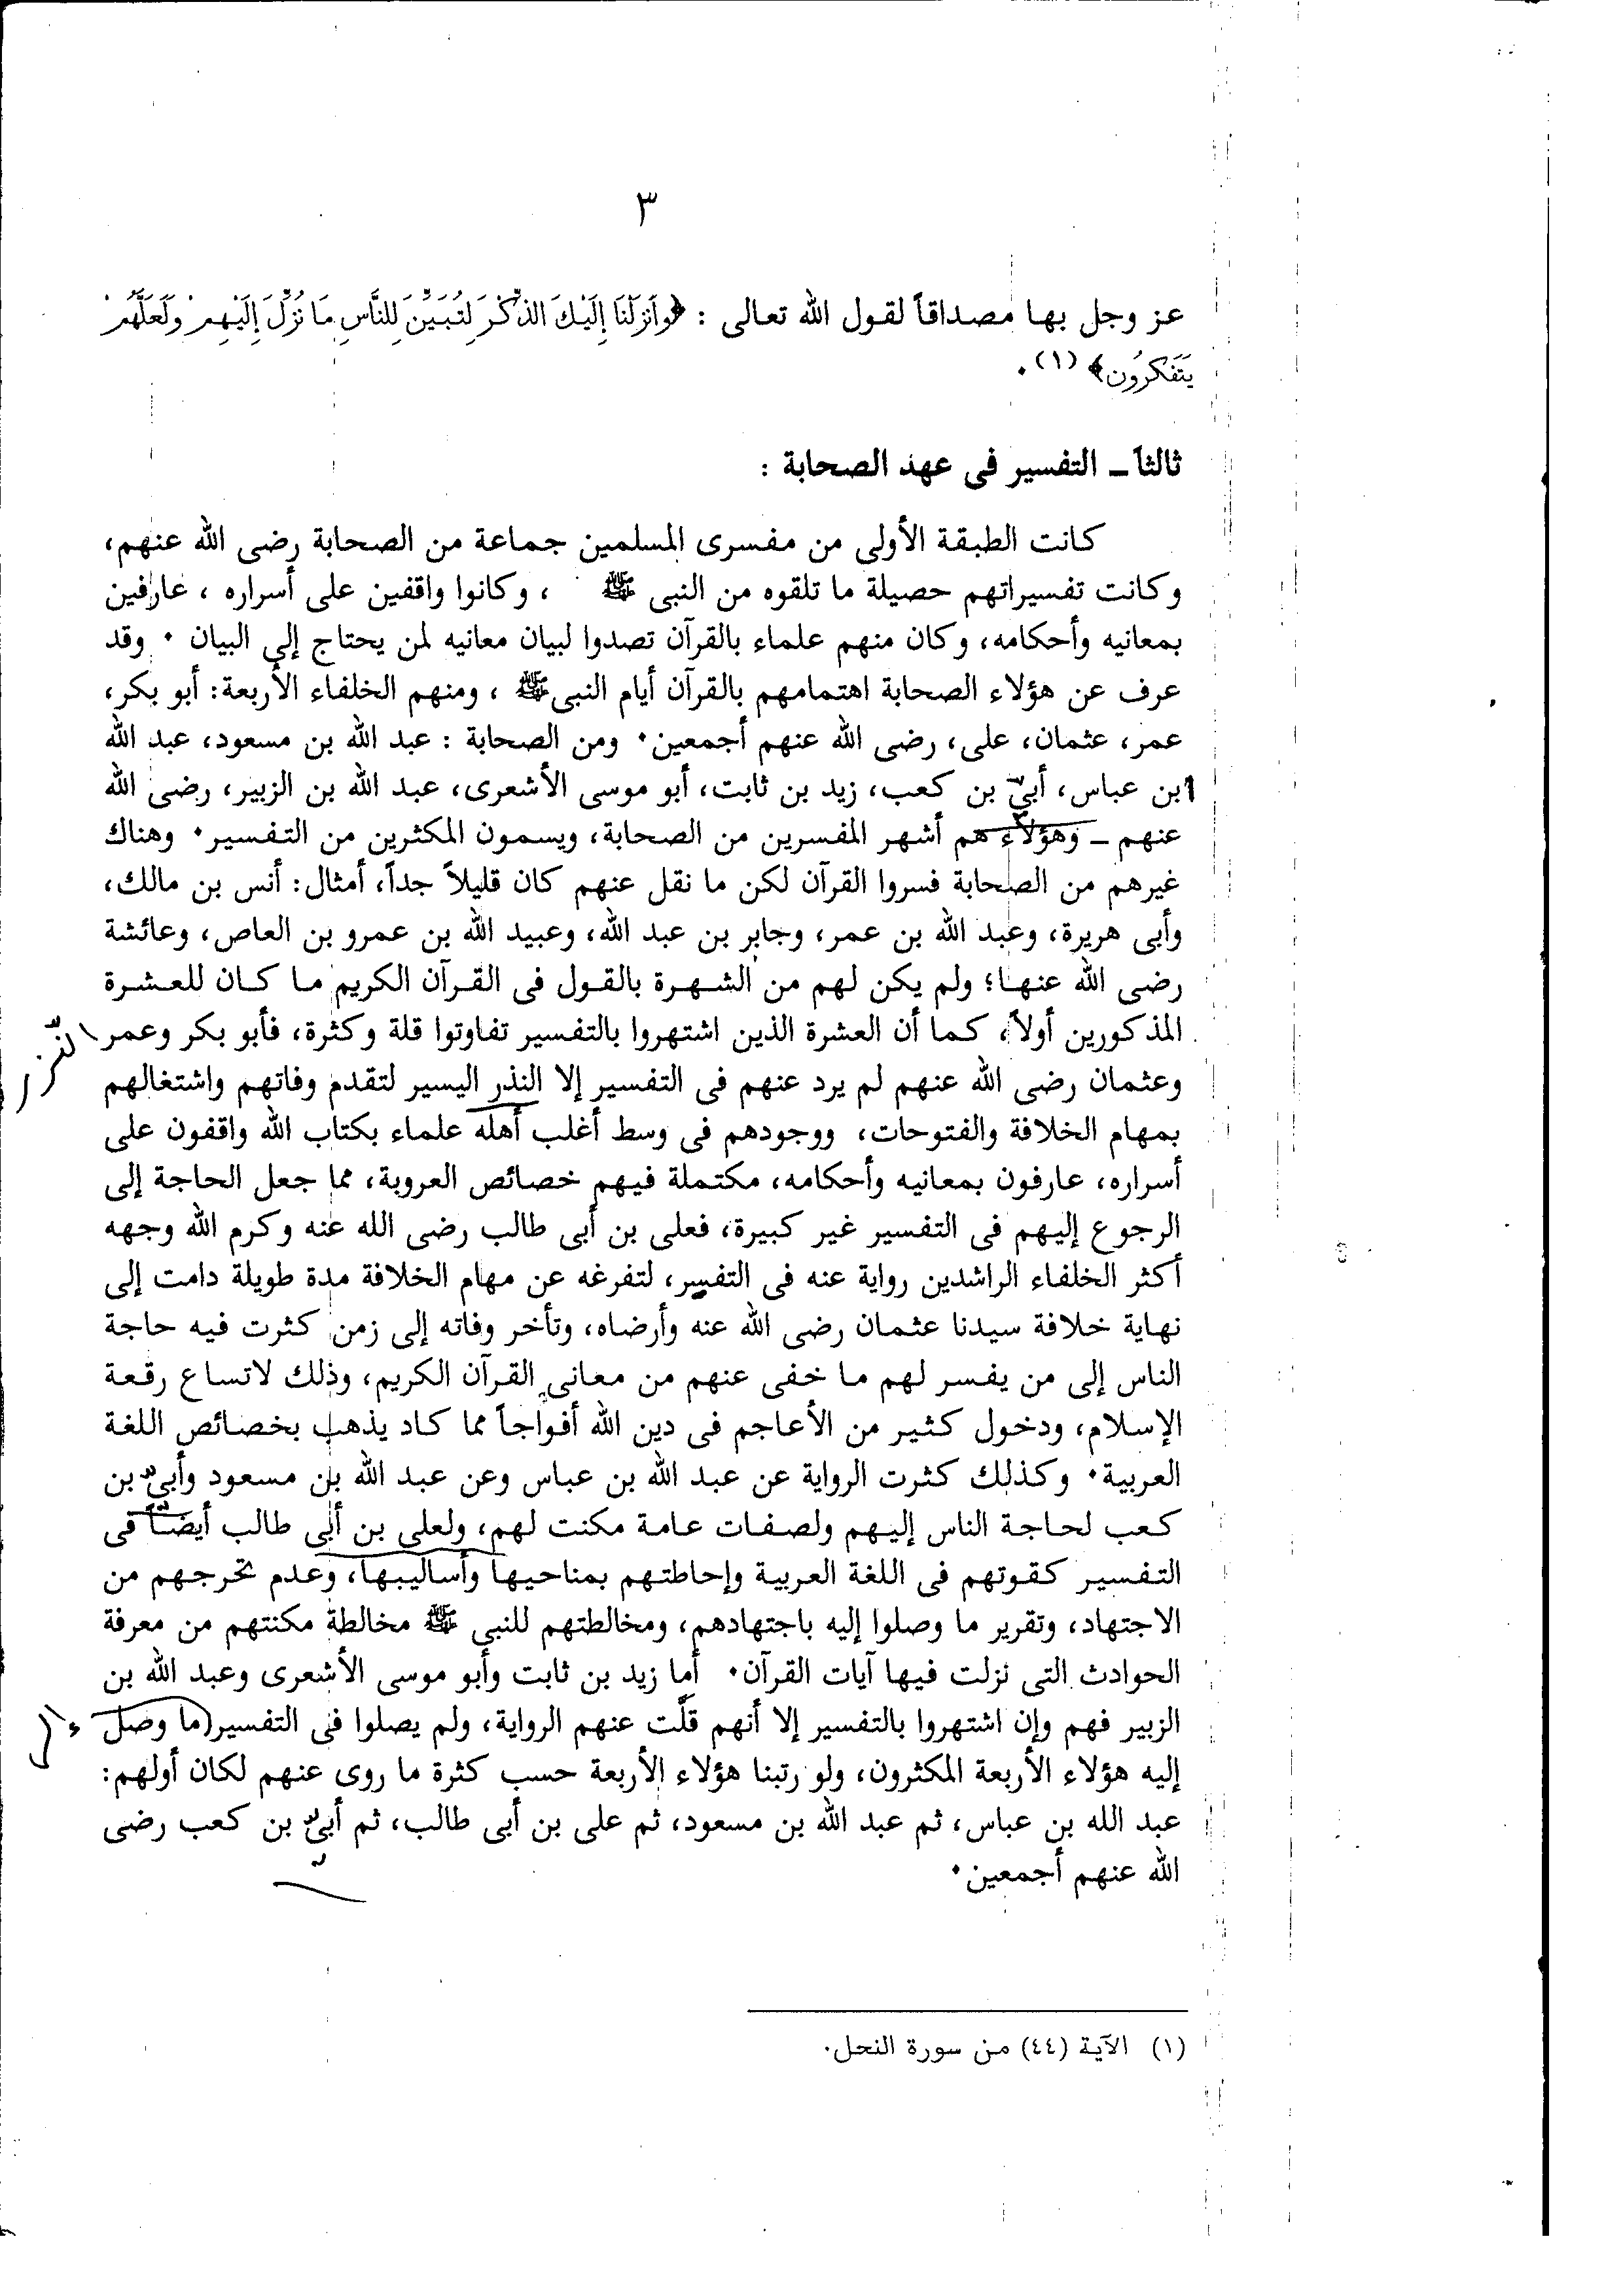 ٣
عز وجل بها مصداقاً لقول الله تعالى : ﴿وَأَنزَلْنَا إِلَيْكَ الذِّكْرَ لِتُبَيِّنَ لِلنَّاسِ مَا نُزِّلَ إِلَيْهِمْ وَلَعَلَّهُمْ
يَتَفَكَّرُون﴾ (١) .
ثالثاً ــ التفسير فى عهد الصحابة :
كانت الطبقة الأولى من مفسرى المسلمين جماعة من الصحابة رضى الله عنهم،
وكانت تفسيراتهم حصيلة ما تلقوه من النبى ﷺ ، وكانوا واقفين على أسراره ، عارفين
بمعانيه وأحكامه، وكان منهم علماء بالقرآن تصدوا لبيان معانيه لمن يحتاج إلى البيان . وقد
عرف عن هؤلاء الصحابة اهتمامهم بالقرآن أيام النبى ﷺ ، ومنهم الخلفاء الأربعة: أبو بكر،
عمر، عثمان، على، رضى الله عنهم أجمعين. ومن الصحابة : عبد الله بن مسعود، عبد الله
ابن عباس، أبىّ بن كعب، زيد بن ثابت، أبو موسى الأشعرى، عبد الله بن الزبير، رضى الله
عنهم ــ وهؤلاء هم أشهر المفسرين من الصحابة، ويسمون المكثرين من التفسير. وهناك
غيرهم من الصحابة فسروا القرآن لكن ما نقل عنهم كان قليلاً جداً، أمثال: أنس بن مالك،
وأبى هريرة، وعبد الله بن عمر، وجابر بن عبد الله، وعبيد الله بن عمرو بن العاص، وعائشة
رضى الله عنها؛ ولم يكن لهم من الشهرة بالقول فى القرآن الكريم ما كان للعشرة
المذكورين أولاً، كما أن العشرة الذين اشتهروا بالتفسير تفاوتوا قلة وكثرة، فأبو بكر وعمر
النّزر
وعثمان رضى الله عنهم لم يرد عنهم فى التفسير إلا النذر اليسير لتقدم وفاتهم واشتغالهم
بمهام الخلافة والفتوحات، ووجودهم فى وسط أغلب أهله علماء بكتاب الله واقفون على
أسراره، عارفون بمعانيه وأحكامه، مكتملة فيهم خصائص العروبة، مما جعل الحاجة إلى
الرجوع إليهم فى التفسير غير كبيرة، فعلى بن أبى طالب رضى الله عنه وكرم الله وجهه
أكثر الخلفاء الراشدين رواية عنه فى التفسير، لتفرغه عن مهام الخلافة مدة طويلة دامت إلى
نهاية خلافة سيدنا عثمان رضى الله عنه وأرضاه، وتأخر وفاته إلى زمن كثرت فيه حاجة
الناس إلى من يفسر لهم ما خفى عنهم من معانى القرآن الكريم، وذلك لاتساع رقعة
الإسلام، ودخول كثير من الأعاجم فى دين الله أفواجاً مما كاد يذهب بخصائص اللغة
العربية. وكذلك كثرت الرواية عن عبد الله بن عباس وعن عبد الله بن مسعود وأبىّ بن
كعب لحاجة الناس إليهم ولصفات عامة مكنت لهم، ولعلى بن أبى طالب أيضاً فى
التفسير كقوتهم فى اللغة العربية وإحاطتهم بمناحيها وأساليبها، وعدم تحرجهم من
الاجتهاد، وتقرير ما وصلوا إليه باجتهادهم، ومخالطتهم للنبى ﷺ مخالطة مكنتهم من معرفة
الحوادث التى نزلت فيها آيات القرآن. أما زيد بن ثابت وأبو موسى الأشعرى وعبد الله بن
الزبير فهم وإن اشتهروا بالتفسير إلا أنهم قلَّت عنهم الرواية، ولم يصلوا فى التفسير (ما وصل
إليه هؤلاء الأربعة المكثرون، ولو رتبنا هؤلاء الأربعة حسب كثرة ما روى عنهم لكان أولهم:
عبد الله بن عباس، ثم عبد الله بن مسعود، ثم على بن أبى طالب، ثم أبىّ بن كعب رضى
الله عنهم أجمعين.
(١) الآية (٤٤) من سورة النحل.